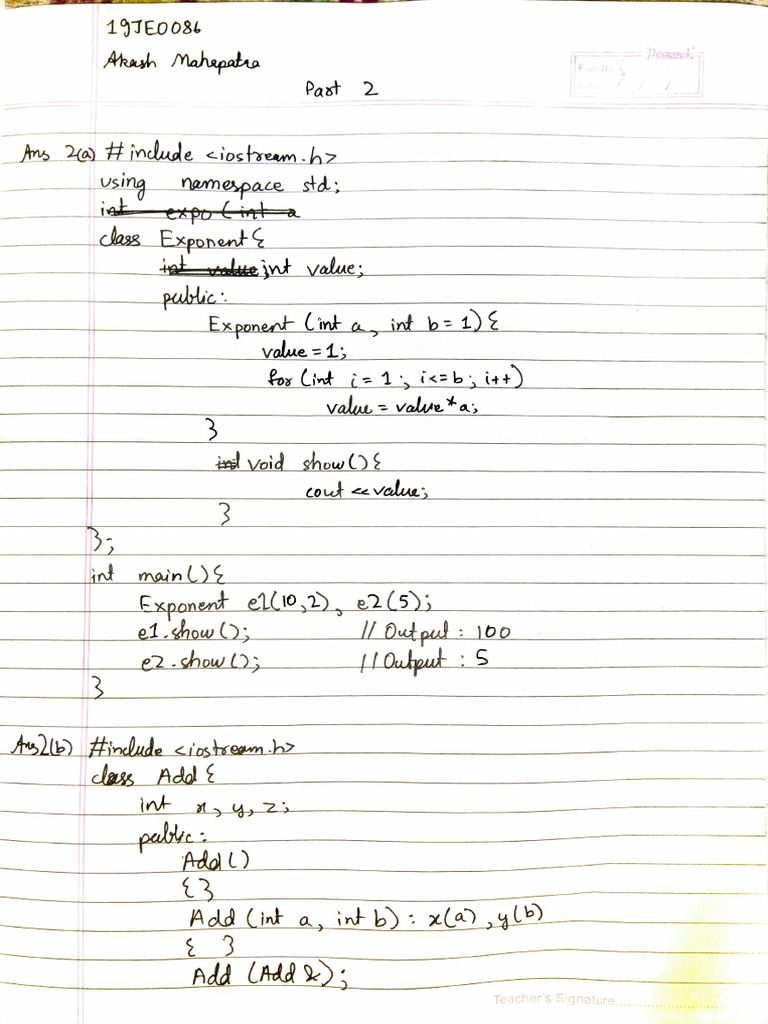 19JE0086
Akash Mahapatra
Part 2
Page No.
Ans 2(a) #include <iostream.h>
using namespace std;
int expo (int a
class Exponent{
int value; int value;
public:
Exponent (int a, int b=1){
value=1;
for (int i=1; i<=b; i++)
value = value*a;
}
int void show(){
cout <<value;
}
};
int main(){
Exponent e1(10,2), e2(5);
e1.show(); // Output : 100
e2.show(); // Output : 5
}
Ans2(b) #include <iostream.h>
class Add{
int x, y, z;
public:
Add()
{}
Add (int a, int b) : x(a), y(b)
{ }
Add (Add &);
Teacher's Signature